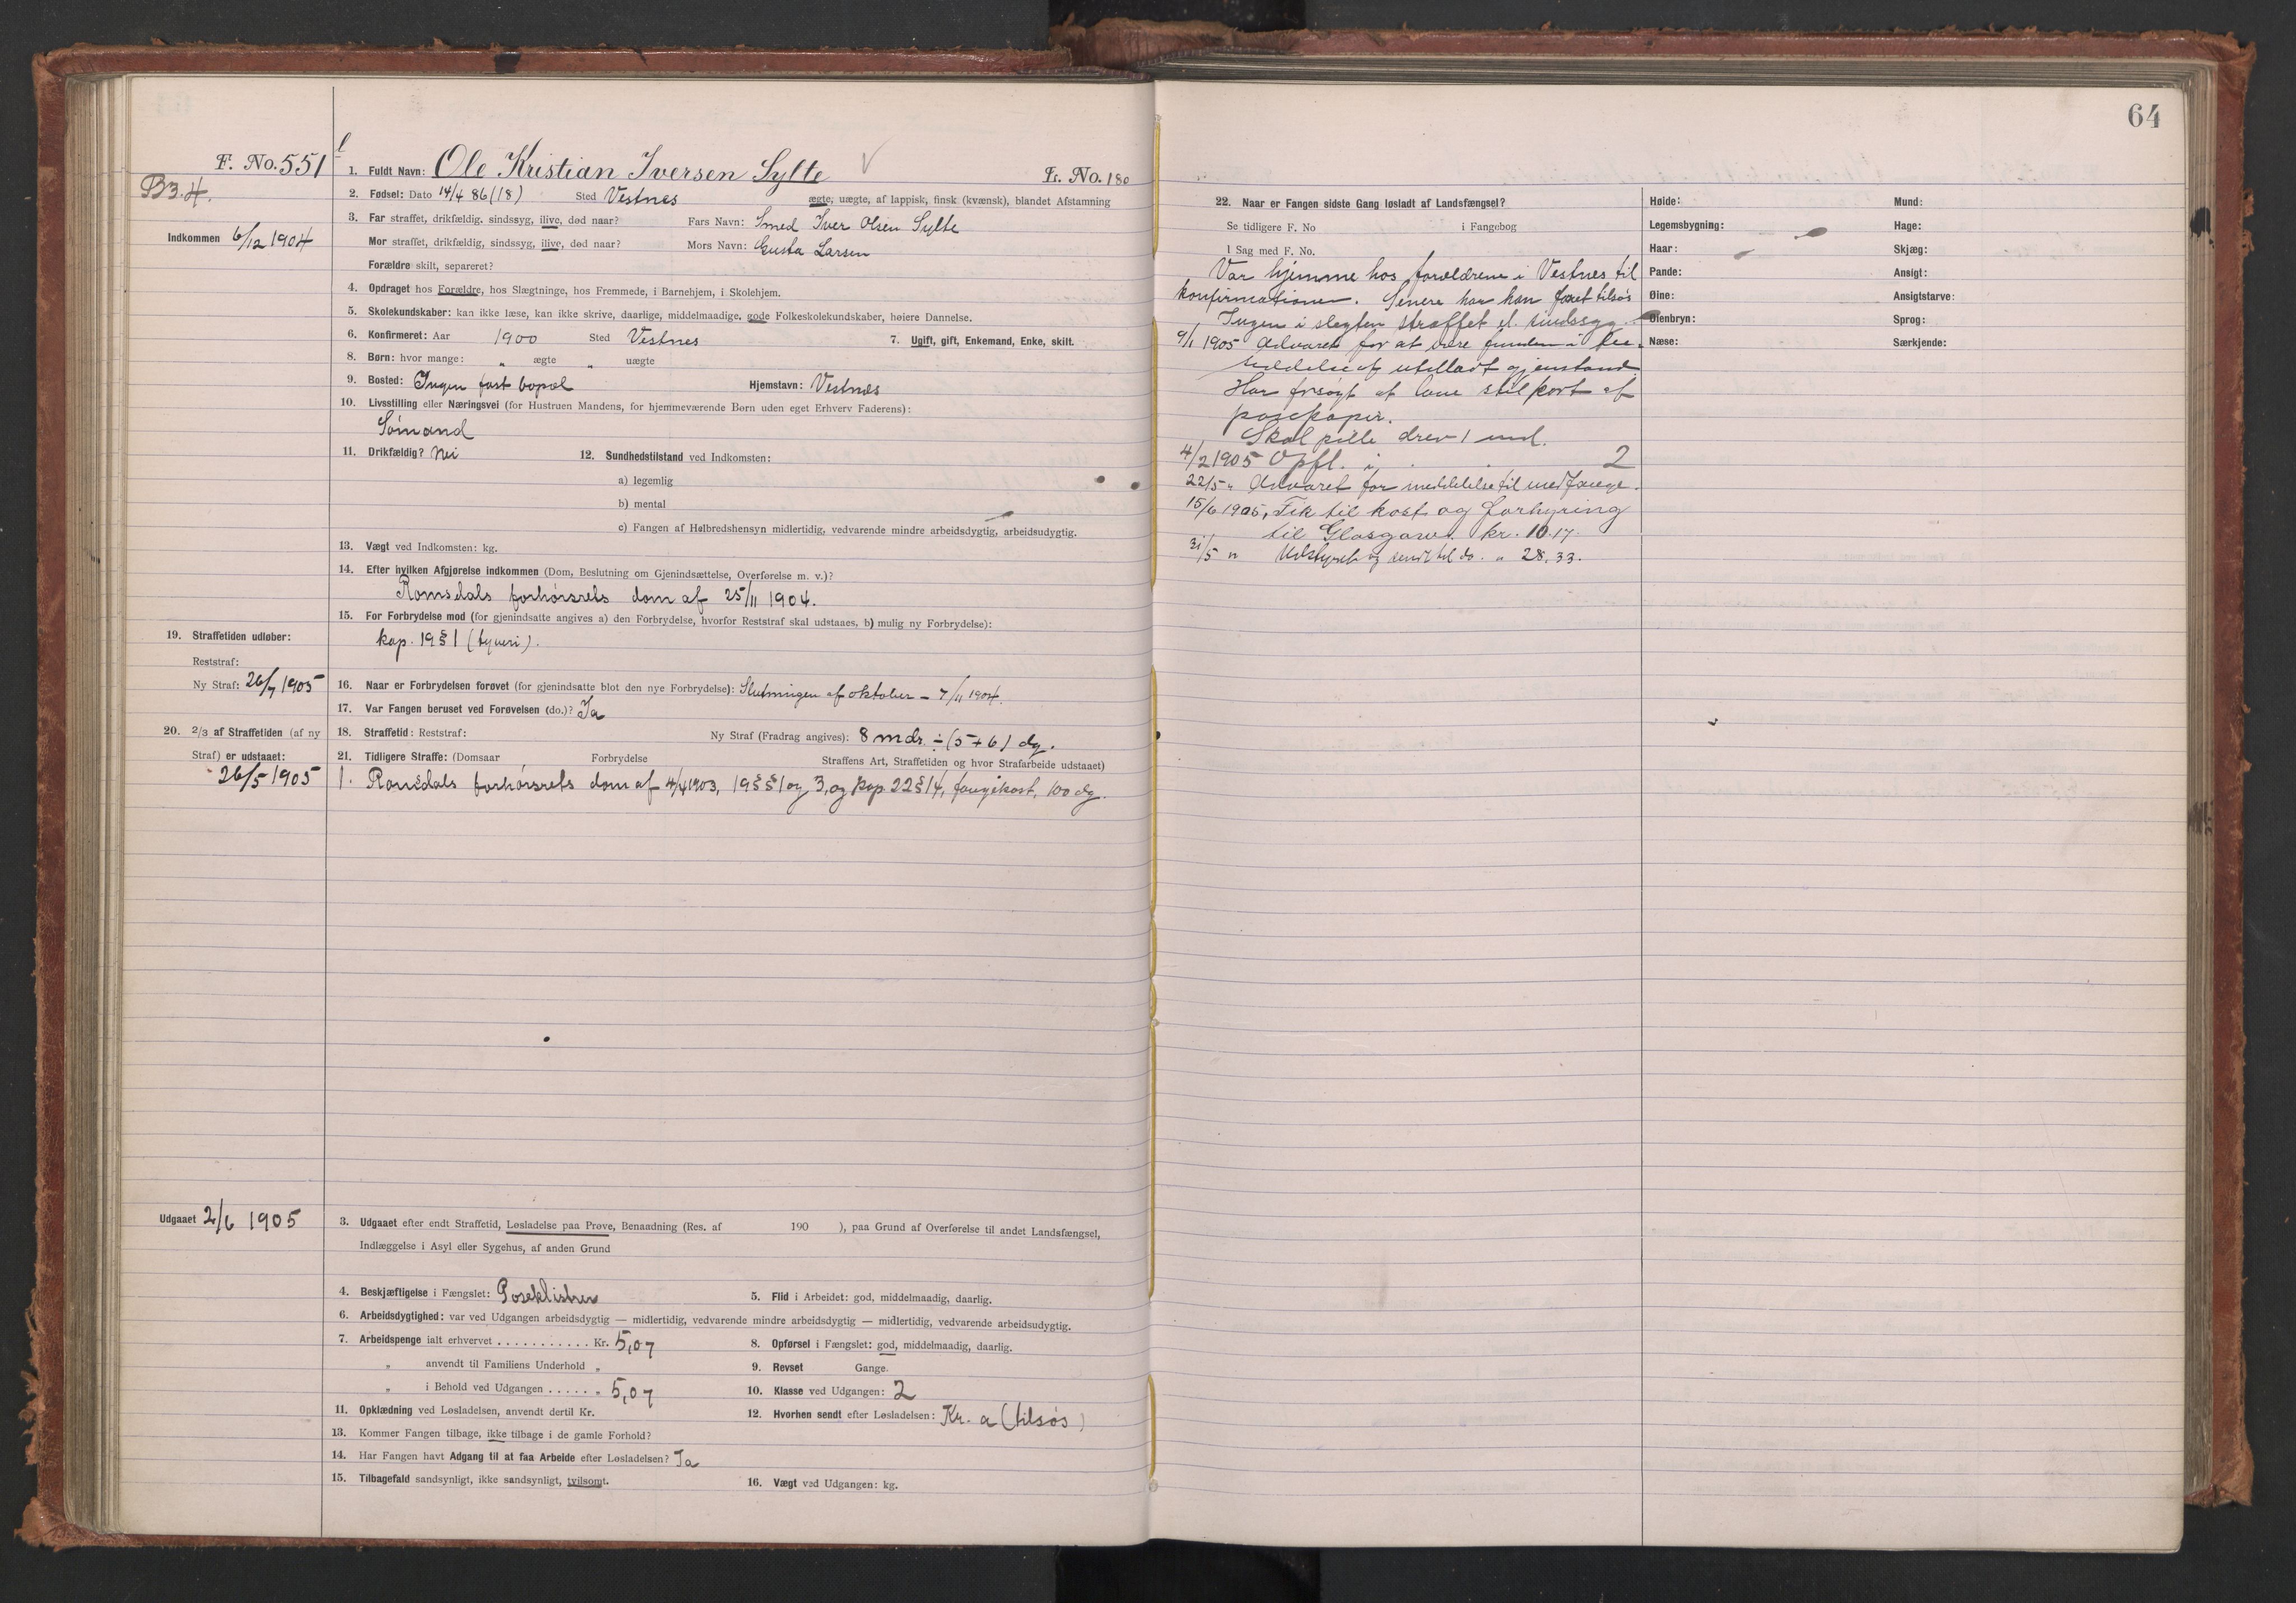 64
F. No. 551
1. Fuldt Navn: Ole Kristian Iversen Sylte
L. No. 180
B3.4.
2. Fødsel: Dato 14/4 86 (18) Sted Vestnes ægte, uægte, af lappisk, finsk (kvænsk), blandet Afstamning
Indkommen 6/12 1904
3. Far straffet, drikfældig, sindssyg, ilive, død naar? Fars Navn: Smed Iver Olsen Sylte
Mor straffet, drikfældig, sindssyg, ilive, død naar? Mors Navn: Gusta Larsen
Forældre skilt, separeret?
4. Opdraget hos Forældre, hos Slægtninge, hos Fremmede, i Barnehjem, i Skolehjem.
5. Skolekundskaber: kan ikke læse, kan ikke skrive, daarlige, middelmaadige, gode Folkeskolekundskaber, høiere Dannelse.
6. Konfirmeret: Aar 1900 Sted Vestnes 7. Ugift, gift, Enkemand, Enke, skilt.
8. Børn: hvor mange: " ægte " uægte
9. Bosted: Ingen fast bopæl Hjemstavn: Vestnes
10. Livsstilling eller Næringsvei (for Hustruen Mandens, for hjemmeværende Børn uden eget Erhverv Faderens):
Sömand
11. Drikfældig? Nei 12. Sundhedstilstand ved Indkomsten:
a) legemlig
b) mental
c) Fangen af Helbredshensyn midlertidig, vedvarende mindre arbeidsdygtig, arbeidsudygtig.
13. Vægt ved Indkomsten: kg.
14. Efter hvilken Afgjørelse indkommen (Dom, Beslutning om Gjenindsættelse, Overførelse m. v.)?
Romsdals forhørsrets dom af 25/11 1904.
15. For Forbrydelse mod (for gjenindsatte angives a) den Forbrydelse, hvorfor Reststraf skal udstaaes, b) mulig ny Forbrydelse):
kap. 19 § 1 (tyveri).
19. Straffetiden udløber:
Reststraf:
Ny Straf: 26/7 1905
16. Naar er Forbrydelsen forøvet (for gjenindsatte blot den nye Forbrydelse): Slutningen af oktober – 7/11 1904.
17. Var Fangen beruset ved Forøvelsen (do.)? Ja
20. 2/3 af Straffetiden (af ny
Straf) er udstaaet:
26/5 1905
18. Straffetid: Reststraf: Ny Straf (Fradrag angives): 8 mdr. ÷ (5+6) dg.
21. Tidligere Straffe: (Domsaar Forbrydelse Straffens Art, Straffetiden og hvor Strafarbeide udstaaet)
1. Romsdals forhørsrets dom af 4/4 1903, 19 §§ 1 og 3, og kap 22 § 14, fangekost, 100 dg.
Udgaaet 2/6 1905
3. Udgaaet efter endt Straffetid, Løsladelse paa Prøve, Benaadning (Res. af 190 ), paa Grund af Overførelse til andet Landsfængsel,
Indlæggelse i Asyl eller Sygehus, af anden Grund
4. Beskjæftigelse i Fængslet: Poseklistrer 5. Flid i Arbeidet: god, middelmaadig, daarlig.
6. Arbeidsdygtighed: var ved Udgangen arbeidsdygtig — midlertidig, vedvarende mindre arbeidsdygtig — midlertidig, vedvarende arbeidsudygtig.
7. Arbeidspenge ialt erhvervet . . . . . . . . . . . Kr. 5,07 8. Opførsel i Fængslet: god, middelmaadig, daarlig.
" anvendt til Familiens Underhold " 9. Revset Gange.
" i Behold ved Udgangen . . . . . " 5,07 10. Klasse ved Udgangen: 2
11. Opklædning ved Løsladelsen, anvendt dertil Kr. 12. Hvorhen sendt efter Løsladelsen: Kr. a (tilsøs)
13. Kommer Fangen tilbage, ikke tilbage i de gamle Forhold?
14. Har Fangen havt Adgang til at faa Arbeide efter Løsladelsen? Ja
15. Tilbagefald sandsynligt, ikke sandsynligt, tvilsomt. 16. Vægt ved Udgangen: kg.
22. Naar er Fangen sidste Gang løsladt af Landsfængsel?
Se tidligere F. No i Fangebog
I Sag med F. No.
Var hjemme hos forældrene i Vestnes til
konfirmationen. Senere har han faret tilsøs
Ingen i slegten straffet el. sindssyg.
9/1 1905 Advaret for at være funden i be-
siddelse af utilladt gjenstand.
Har forsøgt at lave stilkort af
posepapir.
Skal pille drev 1 md.
4/2 1905 Opfl. i 2
22/5 " Advaret for meddelelse til medfange.
15/6 1905, Fik til kost og forhyring
til Glasgow. kr. 10.17.
31/5 " Udstyret og sendt til do. " 28,33.
Høide: Mund:
Legemsbygning: Hage:
Haar: Skjæg:
Pande: Ansigt:
Øine: Ansigtstarve:
Øienbryn: Sprog:
Næse: Særkjende: